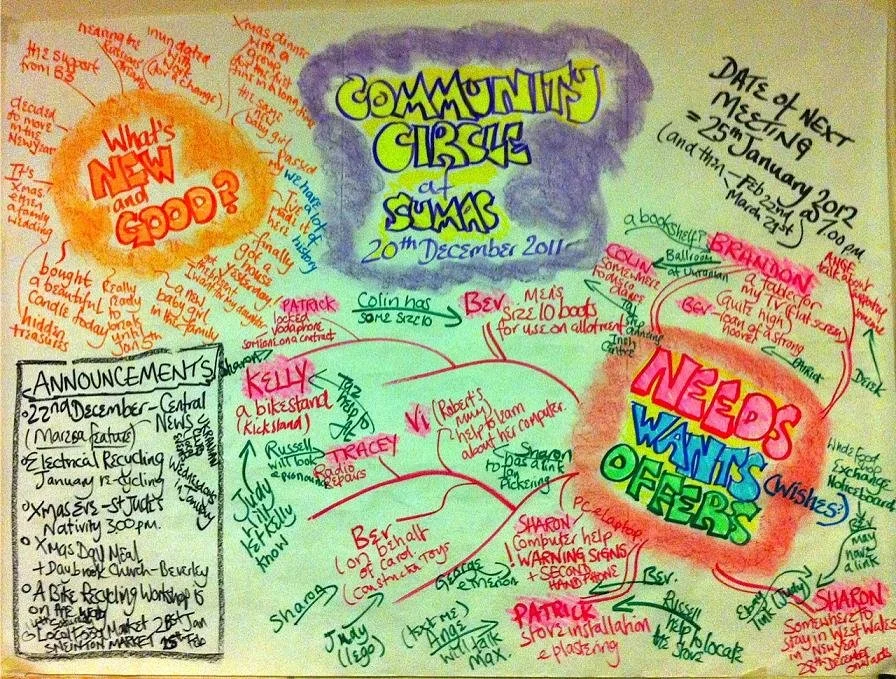 COMMUNITY
CIRCLE
at
SUMAC
20th December 2011
What's
NEW
and
GOOD?
hearing the
inundated
with
work
(for a change)
the support
from B3
Xmas dinner
with a
group
for the first
time in a long time
decided
to move
in the
New year
the same
new
baby girl
It's
Xmas
a family
wedding
we have a lot
of
history
here
finally
got a
house
yesterday!
bought
a beautiful
candle today
hidden
treasures
Really
ready to
break
until
Jan 5th
a new
baby girl
in the family
DATE of NEXT
MEETING
= 25th January 2012
(and then - Feb 22nd @ 7.00 pm
March 21st)
ANNOUNCEMENTS
22nd December - Central
News
(Marzea feature)
Electrical Recycling
January re-cycling
Wednesdays
in January
Xmas Eve - St Jude's
Nativity 3.00pm.
Xmas Day Meal
+ Daybrook Church - Beverley
A Bike Recycling Workshop is
on the
Local Food Market 28th Jan
SNEINTON MARKET
NEEDS
WANTS
(wishes)
OFFERS
a bookshelf?
BRANDON
a table for
my TV (flat screen)
Quite high
Bev - loan of a strong
hoover
Ballroom
at Ukranian
Centre
COLIN
somewhere
to dance
Patrick
Derek
PATRICK
locked
vodaphone
someone on a contract
Colin has
some size 10
BEV
MEN'S
Size 10 boots
for use on allotment
Sharon
KELLY
a bikestand
(kickstand)
Judy
will
let Kelly
know
Russell
will look
TRACEY
Radio
Repairs
Vi
(Robert's
mum)
help to learn
about her computer.
Sharon
has a link
to
Pickering
BEV
(on behalf
of Carol.
Constructa Toys
Sharon
Judy
(lego)
George
SHARON
PC & laptop
Computer help
! WARNING SIGNS
+ SECOND
HAND PHONE
Bev.
PATRICK
stove installation
& plastering
(text me)
Ange
will talk
Max.
Russell
help to locate
the stove
Exchange
Noticeboard
Bev
may
have
a link
Ebony
link (Judy)
SHARON
Somewhere to
stay in West Wales
in New year
28th December
onwards